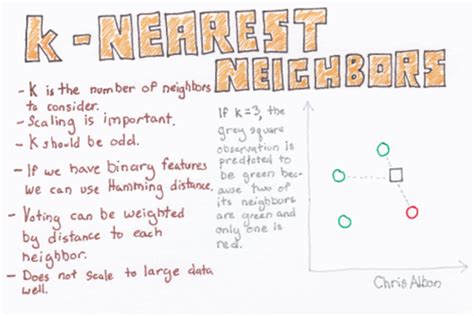 K-NEAREST
NEIGHBORS
- K is the number of neighbors
to consider.
- Scaling is important.
- K should be odd.
- If we have binary features
we can use Hamming distance.
- Voting can be weighted
by distance to each
neighbor.
- Does not scale to large data
well.
If K=3, the
grey square
observation is
predicted to
be green bec-
ause two of
its neighbors
are green and
only one is
red.
Chris Albon